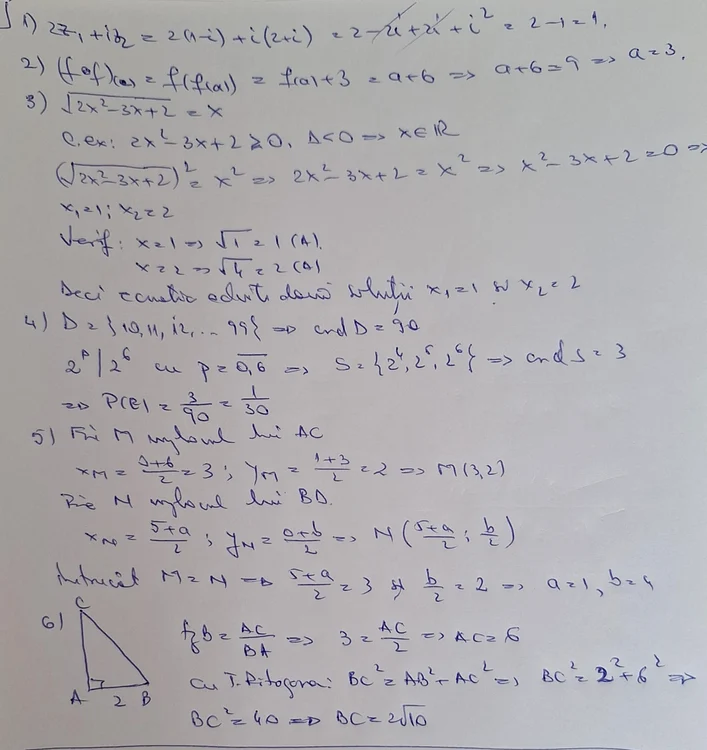 1) 2z₁ + iz₂ = 2(1-i) + i(2+i) = 2 - 2i + 2i + i² = 2-1 = 1.
2) (f∘f)(a) = f(f(a)) = f(a)+3 = a+6 => a+6=9 => a=3.
3) √(2x²-3x+2) = x
C.ex: 2x²-3x+2 ⩾ 0, Δ<0 => x∈ℝ
(√(2x²-3x+2))² = x² => 2x²-3x+2 = x² => x²-3x+2=0 =>
x₁=1; x₂=2
Verif: x=1 => √1 = 1 (A).
x=2 => √4 = 2 (A)
Deci ecuația admite două soluții x₁=1 și x₂=2
4) D = {10, 11, 12, ... 99} => card D = 90
2^p | 2⁶ cu p = 0,6 => S = {2⁴, 2⁵, 2⁶} => card S = 3
=> P(E) = 3/90 = 1/30
5) Fie M mijlocul lui AC
x_M = (0+6)/2 = 3; y_M = (1+3)/2 = 2 => M(3,2)
Fie N mijlocul lui BD.
x_N = (5+a)/2; y_N = (0+b)/2 => N((5+a)/2; b/2)
Întrucât M=N => (5+a)/2 = 3 și b/2 = 2 => a=1, b=4
6) C
A 2 B
tgB = AC/BA => 3 = AC/2 => AC=6
Cu T.Pitagora: BC² = AB² + AC² => BC² = 2²+6² =>
BC² = 40 => BC = 2√10